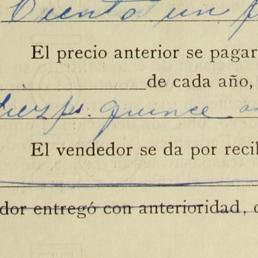 Ciento un
El precio anterior se pagar
de cada año,
quince
El vendedor se da por recib
dor entregó con anterioridad,